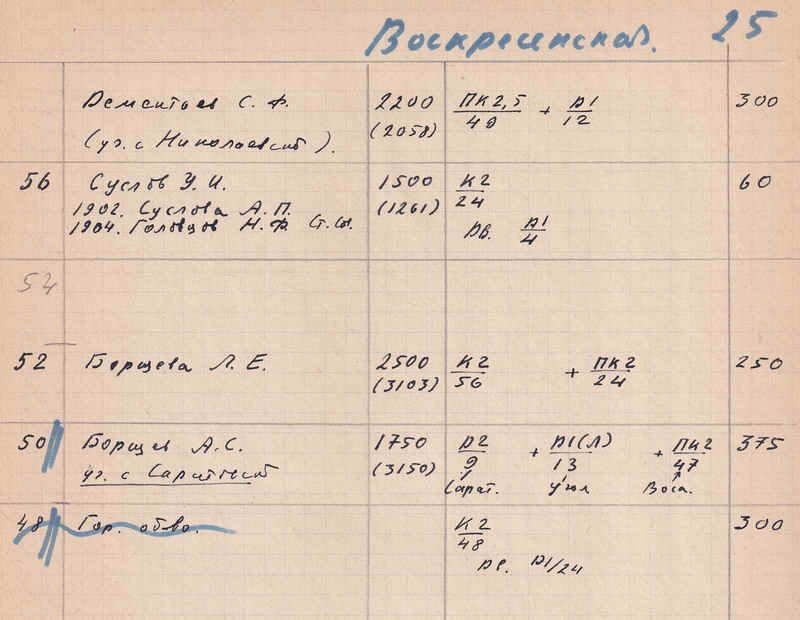 Воскресенская. 25
Дементьев С. Ф. 2200 ПК2,5/49 + Д1/12 300
(уг. с Николаевской). (2058)
56 Суслов У. И. 1500 К2/24 60
1902. Суслова А. П. (1261)
1904. Головцов Н. Ф. Ст. Сов. Дв. Д1/4
54
52 Борщева Л. Е. 2500 К2/56 + ПК2/24 250
(3103)
50 Борщев А. С. 1750 Д2/9 + Д1(Л)/13 + ПК2/47 375
уг. с Саратовской (3150)
Сарат. угол Воск.
48 Гор. об-во. К2/48 300
Дв. Д1/24